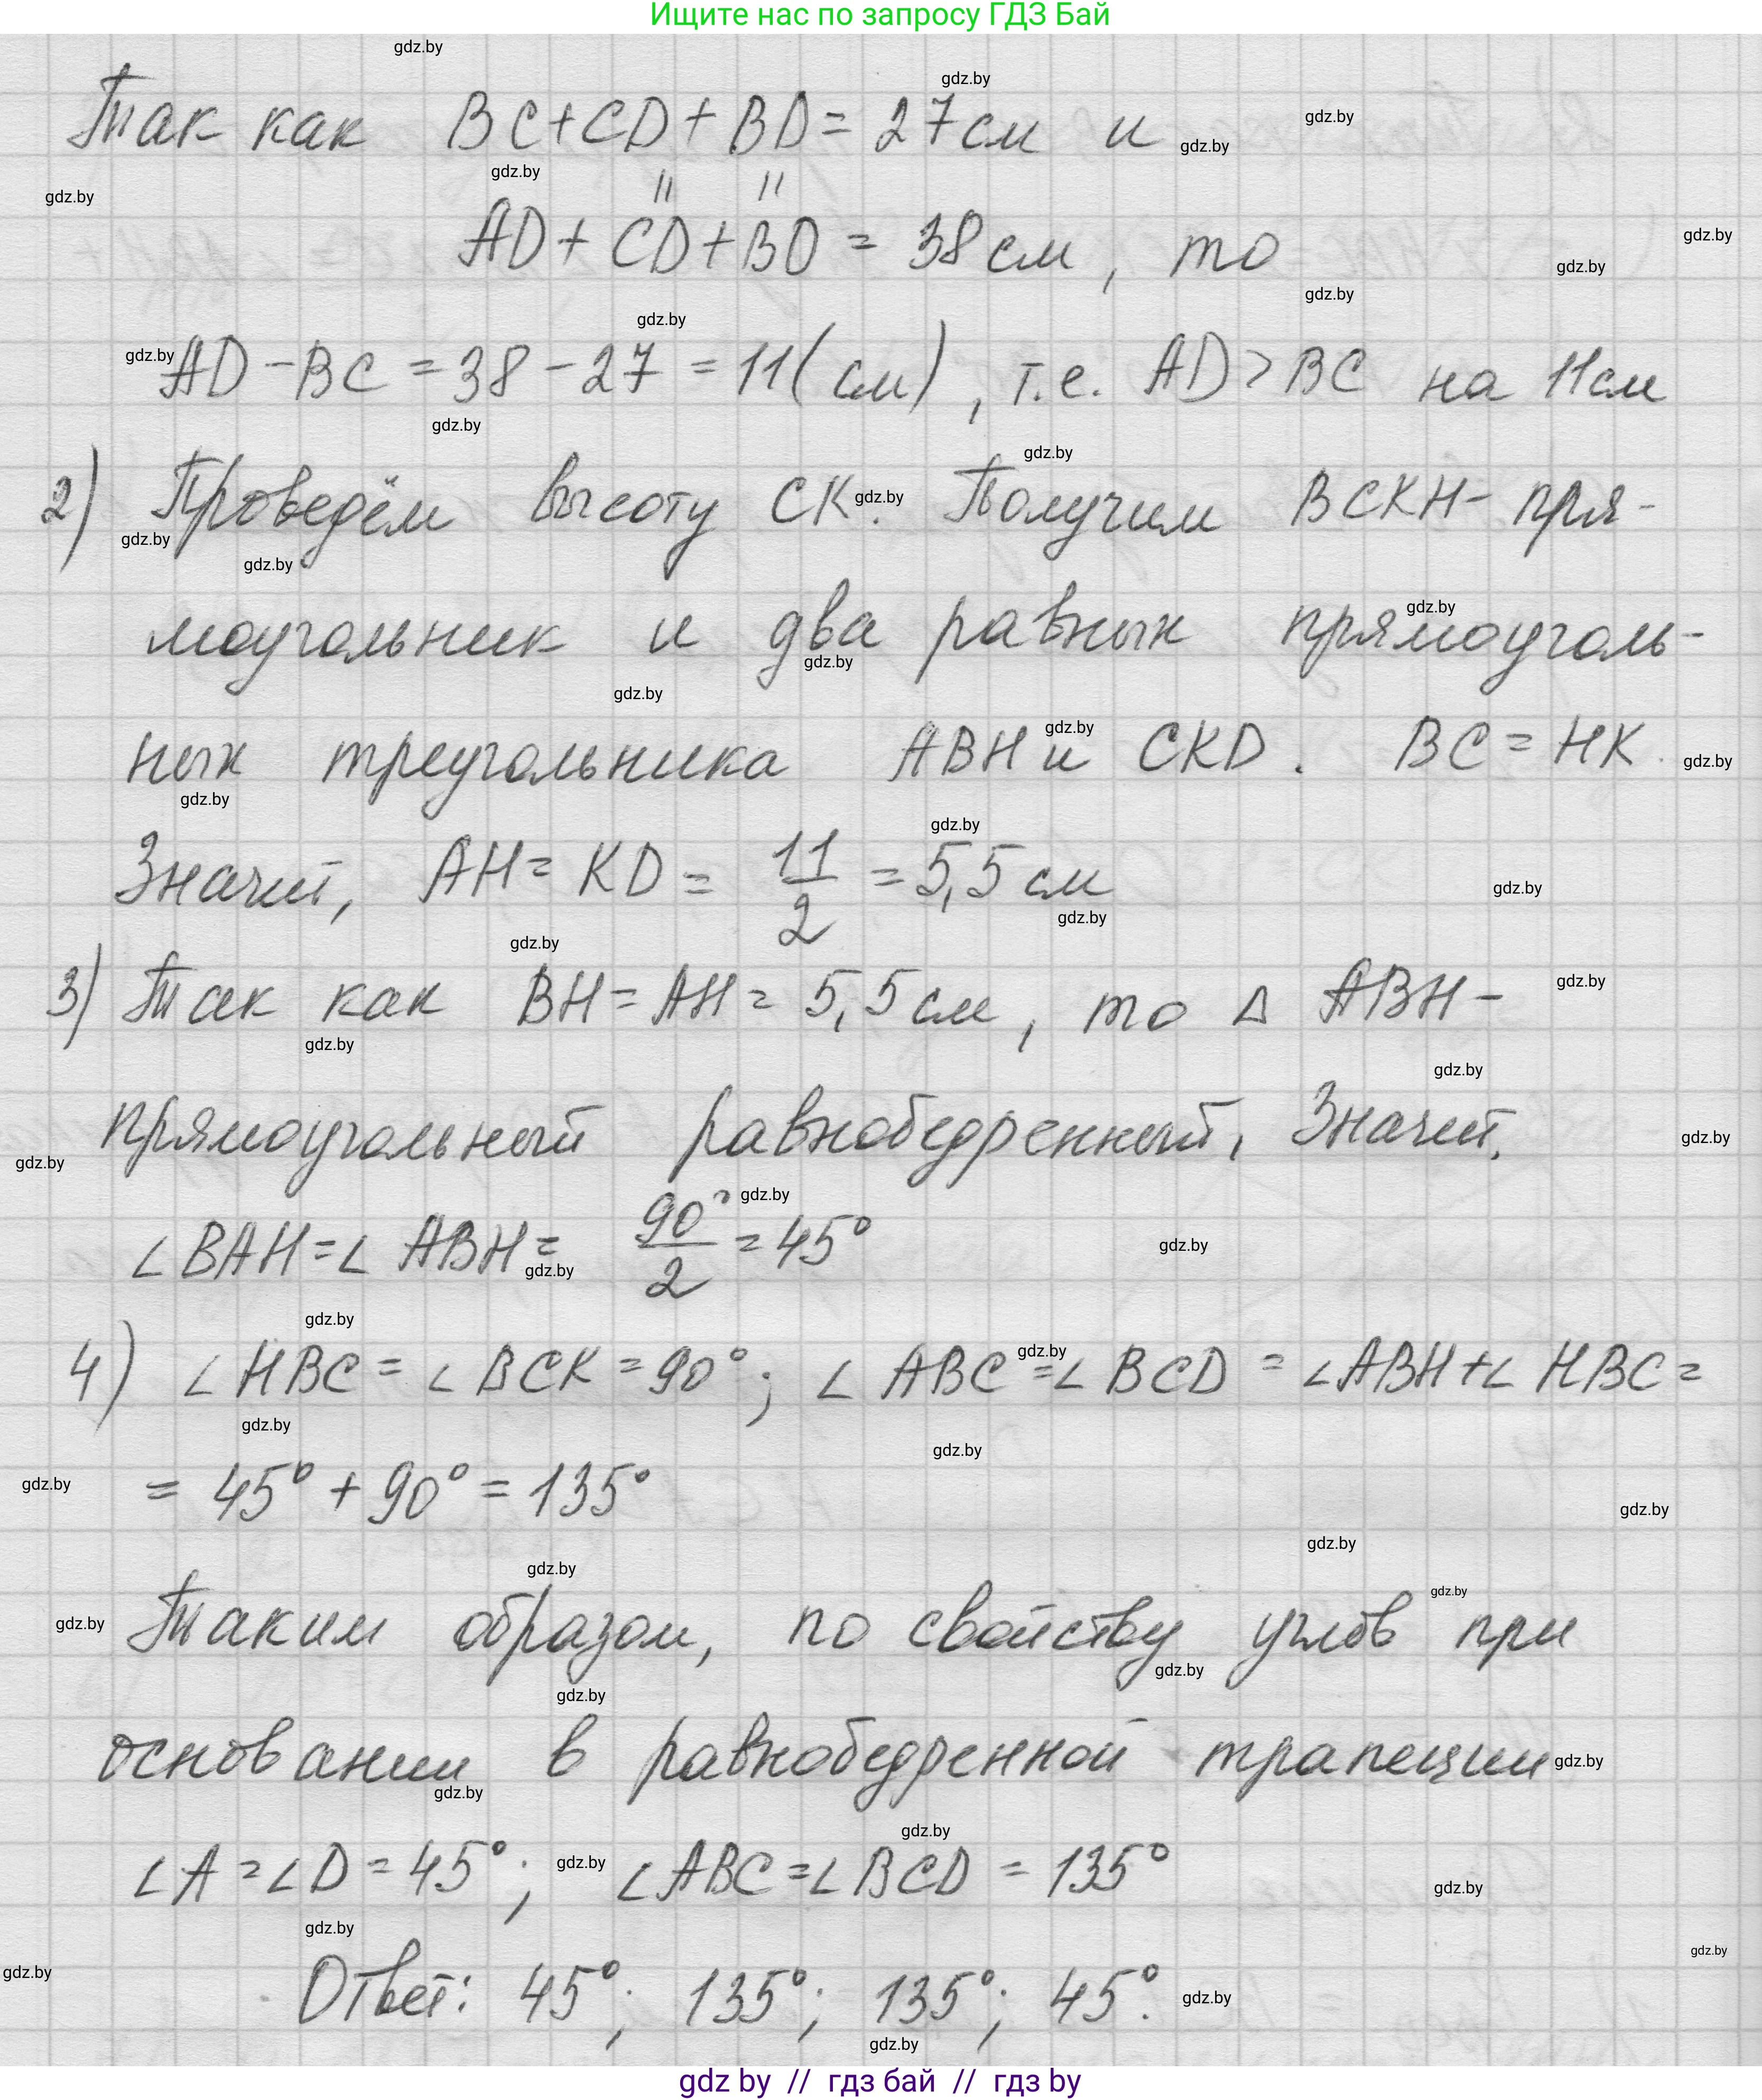 Ищите нас по запросу ГДЗ Бай
Так как BC+CD+BD=27см и
AD+CD+BD=38см, то
AD-BC=38-27=11(см), т.е. AD>BC на 11см
2) Проведём высоту СК. Получим BCKH- пря-
моугольник и два равных прямоуголь-
ных треугольника ABH и CKD. BC=HK.
Значит, AH=KD=11/2=5,5см
3) Так как BH=AH=5,5см, то Δ ABH-
прямоугольный равнобедренный, Значит,
∠BAH=∠ABH=90°/2=45°
4) ∠HBC=∠BCK=90°; ∠ABC=∠BCD=∠ABH+∠HBC=
=45°+90°=135°
Таким образом, по свойству углов при
основании в равнобедренной трапеции
∠A=∠D=45°; ∠ABC=∠BCD=135°
Ответ: 45°; 135°; 135°; 45°.
gdz by // гдз бай // гдз by